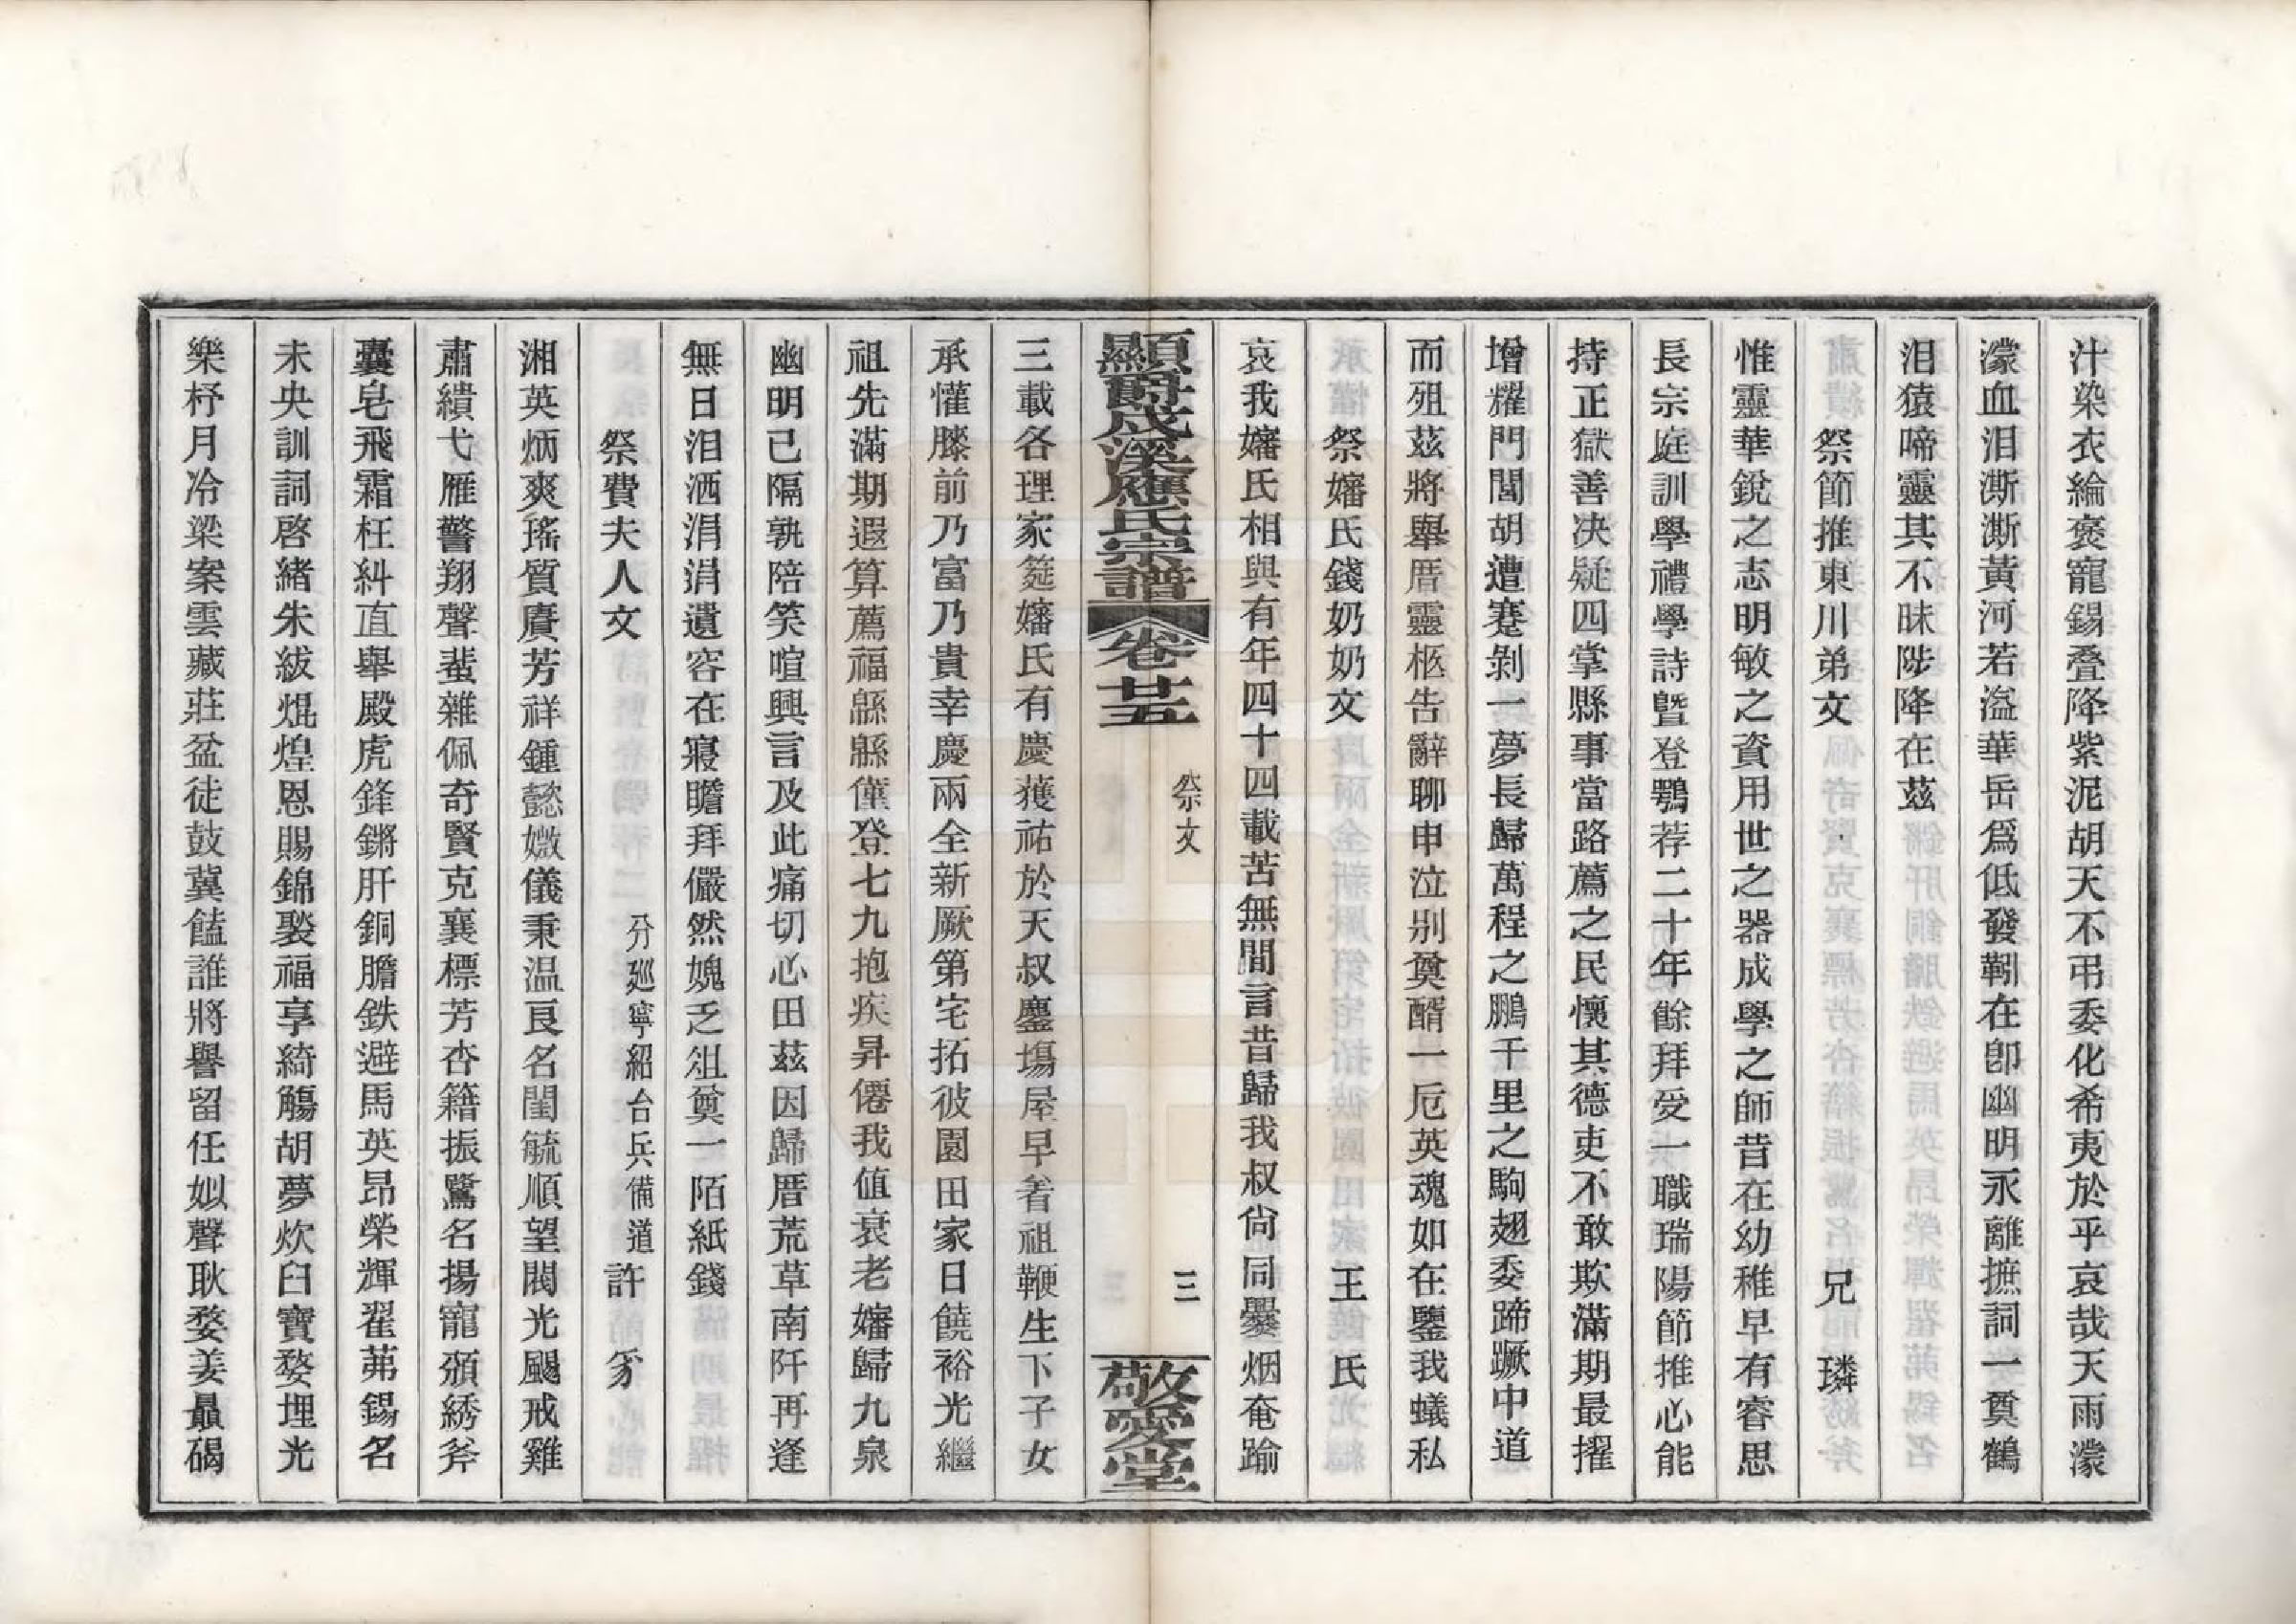 汁染衣綸褒寵錫叠降紫泥胡天不弔委化希夷於乎哀哉天雨濛
濛血泪澌澌黃河若溢華岳爲低發靷在卽幽明永離摭詞一奠鶴
泪猿啼靈其不昧陟降在茲
祭節推東川弟文 兄 璘
惟靈華銳之志明敏之資用世之器成學之師昔在幼稚早有睿思
長宗庭訓學禮學詩曁登鶚荐二十年餘拜受一職瑞陽節推心能
持正獄善决疑四掌縣事當路薦之民懷其德吏不敢欺滿期最擢
增耀門閭胡遭蹇剝一夢長歸萬程之鵬千里之駒翅委蹄蹶中道
而殂茲將舉厝靈柩告辭聊申泣別奠酹一卮英魂如在鑒我蟻私
祭嬸氏錢奶奶文 王 氏
哀我嬸氏相與有年四十四載苦無間言昔歸我叔尙同爨烟奄踰
顯爵成溪應氏宗譜 卷廿五 祭文 三 敬愛堂
三載各理家筵嬸氏有慶獲祐於天叔鏖塲屋早着祖鞭生下子女
承懽膝前乃富乃貴幸慶兩全新厥第宅拓彼園田家日饒裕光繼
祖先滿期遐算薦福緜緜僅登七九抱疾昇僊我值衰老嬸歸九泉
幽明已隔孰陪笑喧興言及此痛切心田茲因歸厝荒草南阡再逢
無日泪洒涓涓遺容在寢瞻拜儼然媿乏俎奠一陌紙錢
祭費夫人文 分廵寧紹台兵備道 許 豸
湘英炳爽瑤質賡芳祥鍾懿媺儀秉温良名閨毓順望閥光颺戒雞
肅繢弋雁警翔聲蜚雜佩奇賢克襄標芳杏籍振鷺名揚寵頒綉斧
囊皂飛霜枉糾直舉殿虎鋒鏘肝銅膽鉄避馬英昂榮輝翟茀錫名
未央訓詞啓緒朱紱焜煌恩賜錦褧福享綺觴胡夢炊臼寶婺埋光
樂杼月冷梁案雲藏莊盆徒鼓冀饁誰將譽留任姒聲耿婺姜贔碣